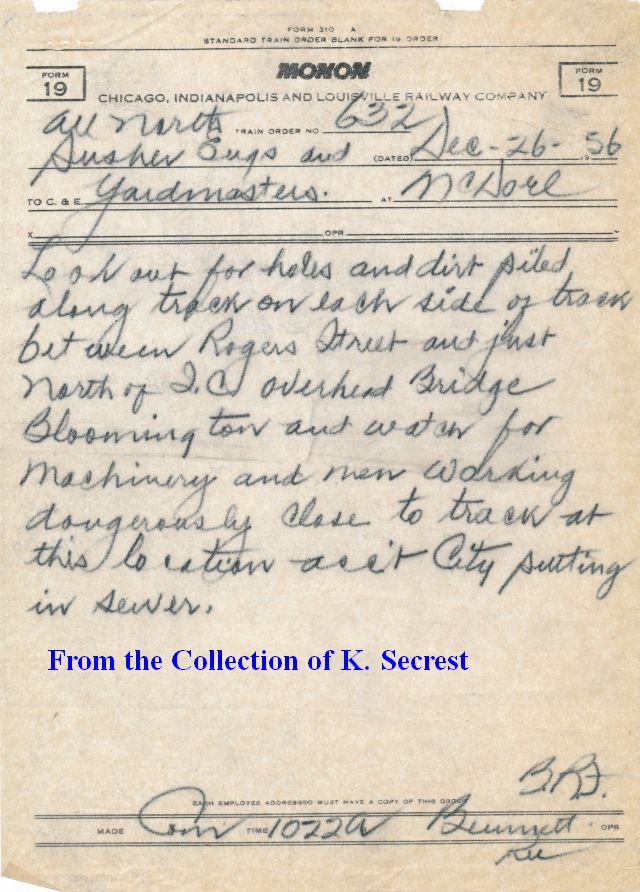 FORM 310 A
STANDARD TRAIN ORDER BLANK FOR 19 ORDER
FORM 19
MONON
FORM 19
CHICAGO, INDIANAPOLIS AND LOUISVILLE RAILWAY COMPANY
All North TRAIN ORDER NO 632
Pusher Engs and (DATED) Dec-26- 1956
TO C. & E. Yardmasters. AT McDoel
X OPR
Look out for holes and dirt piled
along track on each side of track
between Rogers Street and just
North of I.C. overhead Bridge
Bloomington and watch for
Machinery and men working
dangerously close to track at
this location acct City putting
in sewer.
From the Collection of K. Secrest
EACH EMPLOYEE ADDRESSED MUST HAVE A COPY OF THIS ORDER
MADE Com TIME 1022A Bennett OPR